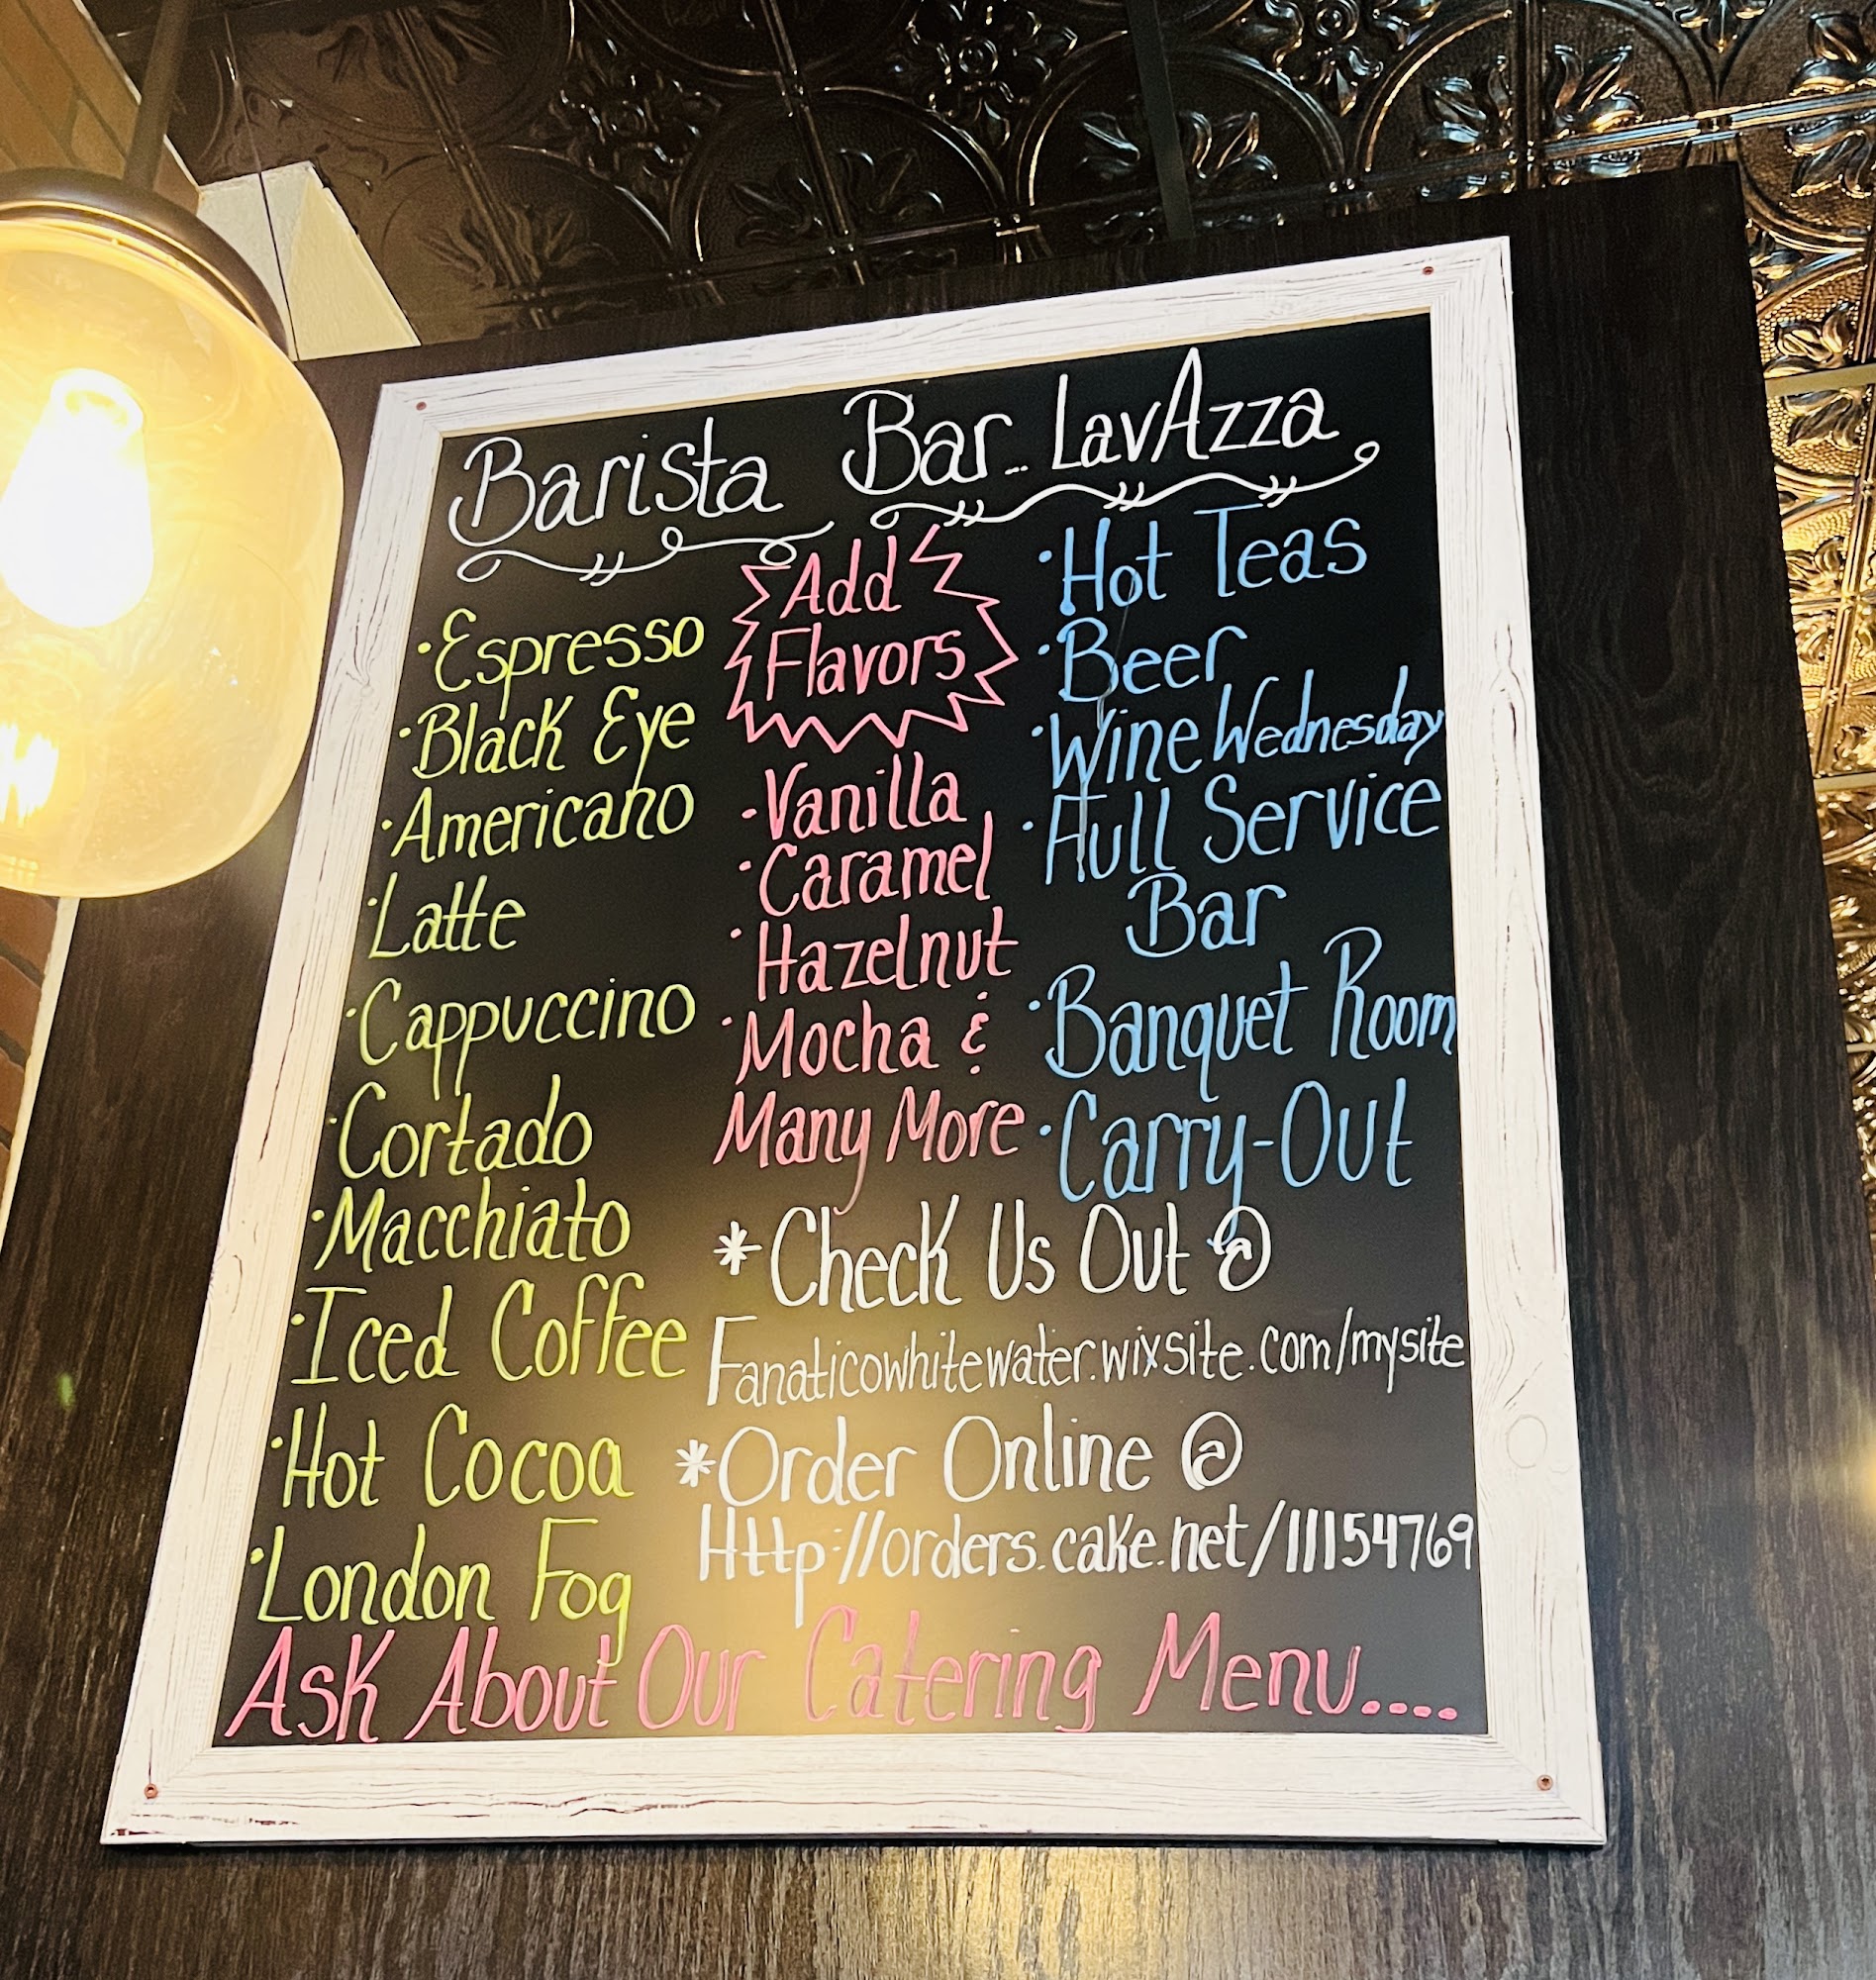 Barista Bar... LavAzza
· Espresso
· Black Eye
· Americano
· Latte
· Cappuccino
· Cortado
· Macchiato
· Iced Coffee
· Hot Cocoa
· London Fog
Add
Flavors
- Vanilla
· Caramel
· Hazelnut
· Mocha &
Many More
· Hot Teas
· Beer
· Wine Wednesday
· Full Service
Bar
· Banquet Room
· Carry-Out
* Check Us Out @
Fanaticowhitewater.wixsite.com/mysite
* Order Online @
Http://orders.cake.net/11154769
Ask About Our Catering Menu....